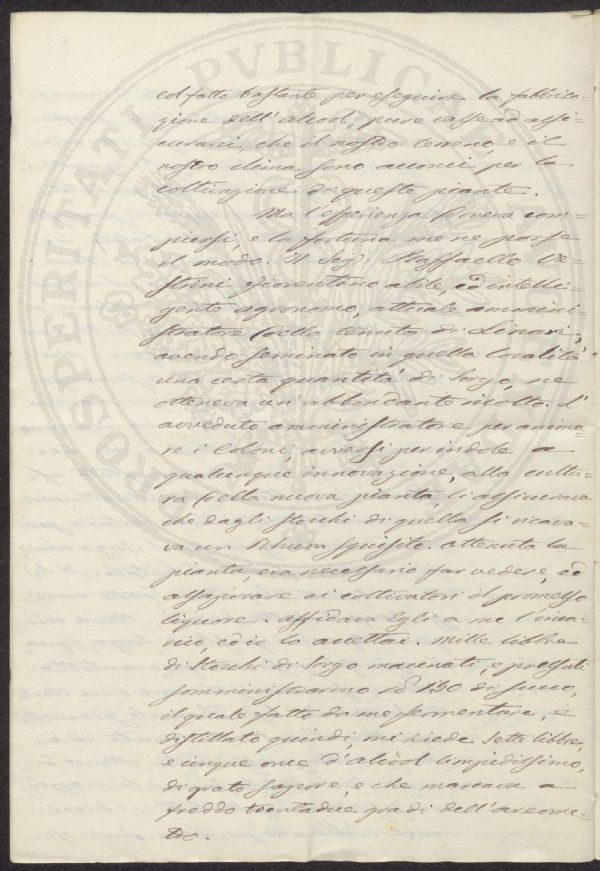 col fatto bastante per eseguire la fabbrica-
zione dell'alcool, pure valse ad assi-
curarsi, che il nostro terreno, e il
nostro clima sono acconci per la
coltivazione di queste piante.
Ma l'esperienza doveva com-
piersi, e la fortuna me ne porse
il modo. Il Sigr. Raffaello Ve-
strini fiorentino abile, ed intelli-
gente agronomo, attuale ammini-
stratore della tenuta di Linari,
avendo seminato in quella località
una certa quantità di Sorgo, ne
otteneva un'abbondante ricolto. L'
avveduto amministratore per anima-
re i Coloni, avversi per indole a
qualunque innovazione, alla cultu-
ra della nuova pianta, li assicurava
che dagli stocchi di quella si ricava-
va un Rhum squisito. Ottenuta la
pianta, era necessario far vedere, ed
assaporare ai coltivatori il promesso
liquore. Affidava Egli a me l'inca-
rico, ed io lo accettai. Mille libbre
di Stocchi di Sorgo macinati, e pressati
somministrarono 150 di succo,
il quale fatto da me fermentare, e
distillato quindi, mi diede sette libbre,
e cinque once d'alcool limpidissimo,
di grato sapore, e che marcava a
freddo trentadue gradi dell'areome-
tro.
PROSPERITATI PVBLICAE